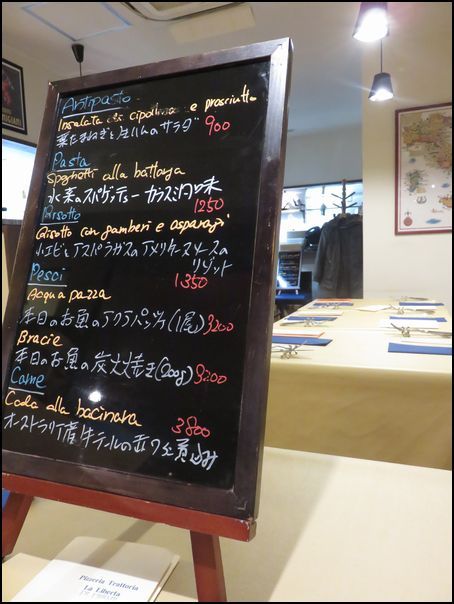 Antipasto
Insalata di cipollina e prosciutto
葉たまねぎと生ハムのサラダ 900
Pasta
Spaghetti alla bottarga
水菜のスパゲッティーカラスミ風味
1250
Risotto
Risotto con gamberi e asparagi
小エビとアスパラガスのアメリケーヌソースの
リゾット
1350
Pesci
Acqua pazza
本日のお魚のアクアパッツァ(1尾) 3200
Bracie
本日のお魚の炭火焼き(200g) 3200
Carne
Coda alla bacinara
3800
オーストラリア産牛テールの赤ワイン煮込み
Pizzeria Trattoria
La Libertà